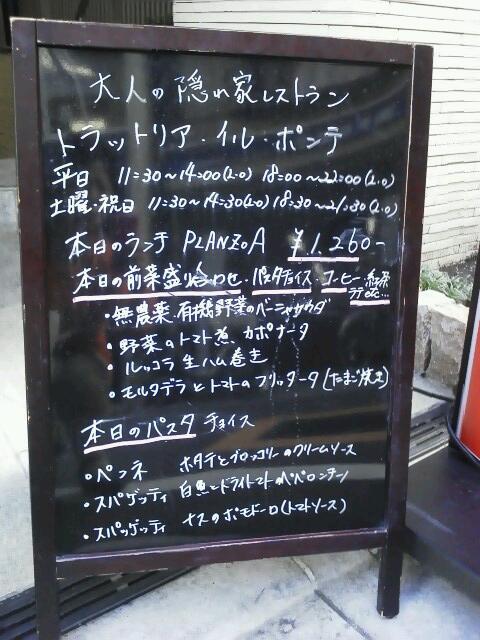 大人の隠れ家レストラン
トラットリア・イル・ポンテ
平日 11:30~14:00(L.O) 18:00~22:00(L.O)
土曜・祝日 11:30~14:30(L.O) 18:30~21:30(L.O)
本日のランチ PLANZO A ¥1,260-
本日の前菜盛り合わせ・パスタチョイス・コーヒー・紅茶
ラテetc...
・無農薬、有機野菜のバーニャカウダ
・野菜のトマト煮、カポナータ
・ルッコラ生ハム巻き
・モルタデラとトマトのフリッタータ(たまご焼き)
本日のパスタ チョイス
・ペンネ ホタテとブロッコリーのクリームソース
・スパゲッティ 白魚とドライトマトのペペロンチーノ
・スパッゲッティ ナスのポモドーロ(トマトソース)